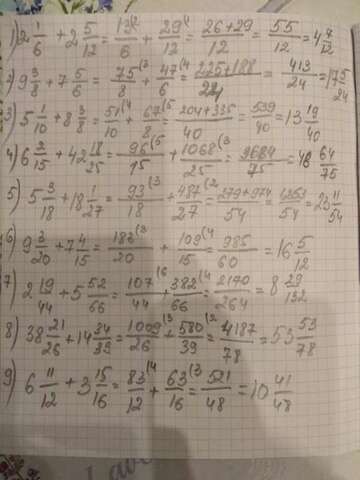 1) 2 1/6 + 2 5/12 = 13(2/6 + 29(1/12 = 26+29/12 = 55/12 = 4 7/12
2) 9 3/8 + 7 5/6 = 75(3/8 + 47(4/6 = 225+188/24 = 413/24 = 17 5/24
3) 5 1/10 + 8 3/8 = 51(4/10 + 67(5/8 = 204+335/40 = 539/40 = 13 19/40
4) + 42 18/25 = 96(5/15 + 1068(3/25 = 64/75
5) 5 3/18 + 18 1/27 = 93(3/18 + 487(2/27 = 279+974/54 = 1253/54 = 23 11/54
6) 9 3/20 + 7 4/15 = 183(3/20 + 109(4/15 = 985/60 = 16 5/12
7) 2 19/44 + 5 52/66 = 107(6/44 + 382(4/66 = 2170/264 = 8 29/132
8) 38 21/26 + 14 34/39 = 1009(3/26 + 580(2/39 = 4187/78 = 53 53/78
9) 6 11/12 + 3 15/16 = 83(4/12 + 63(3/16 = 521/48 = 10 41/48